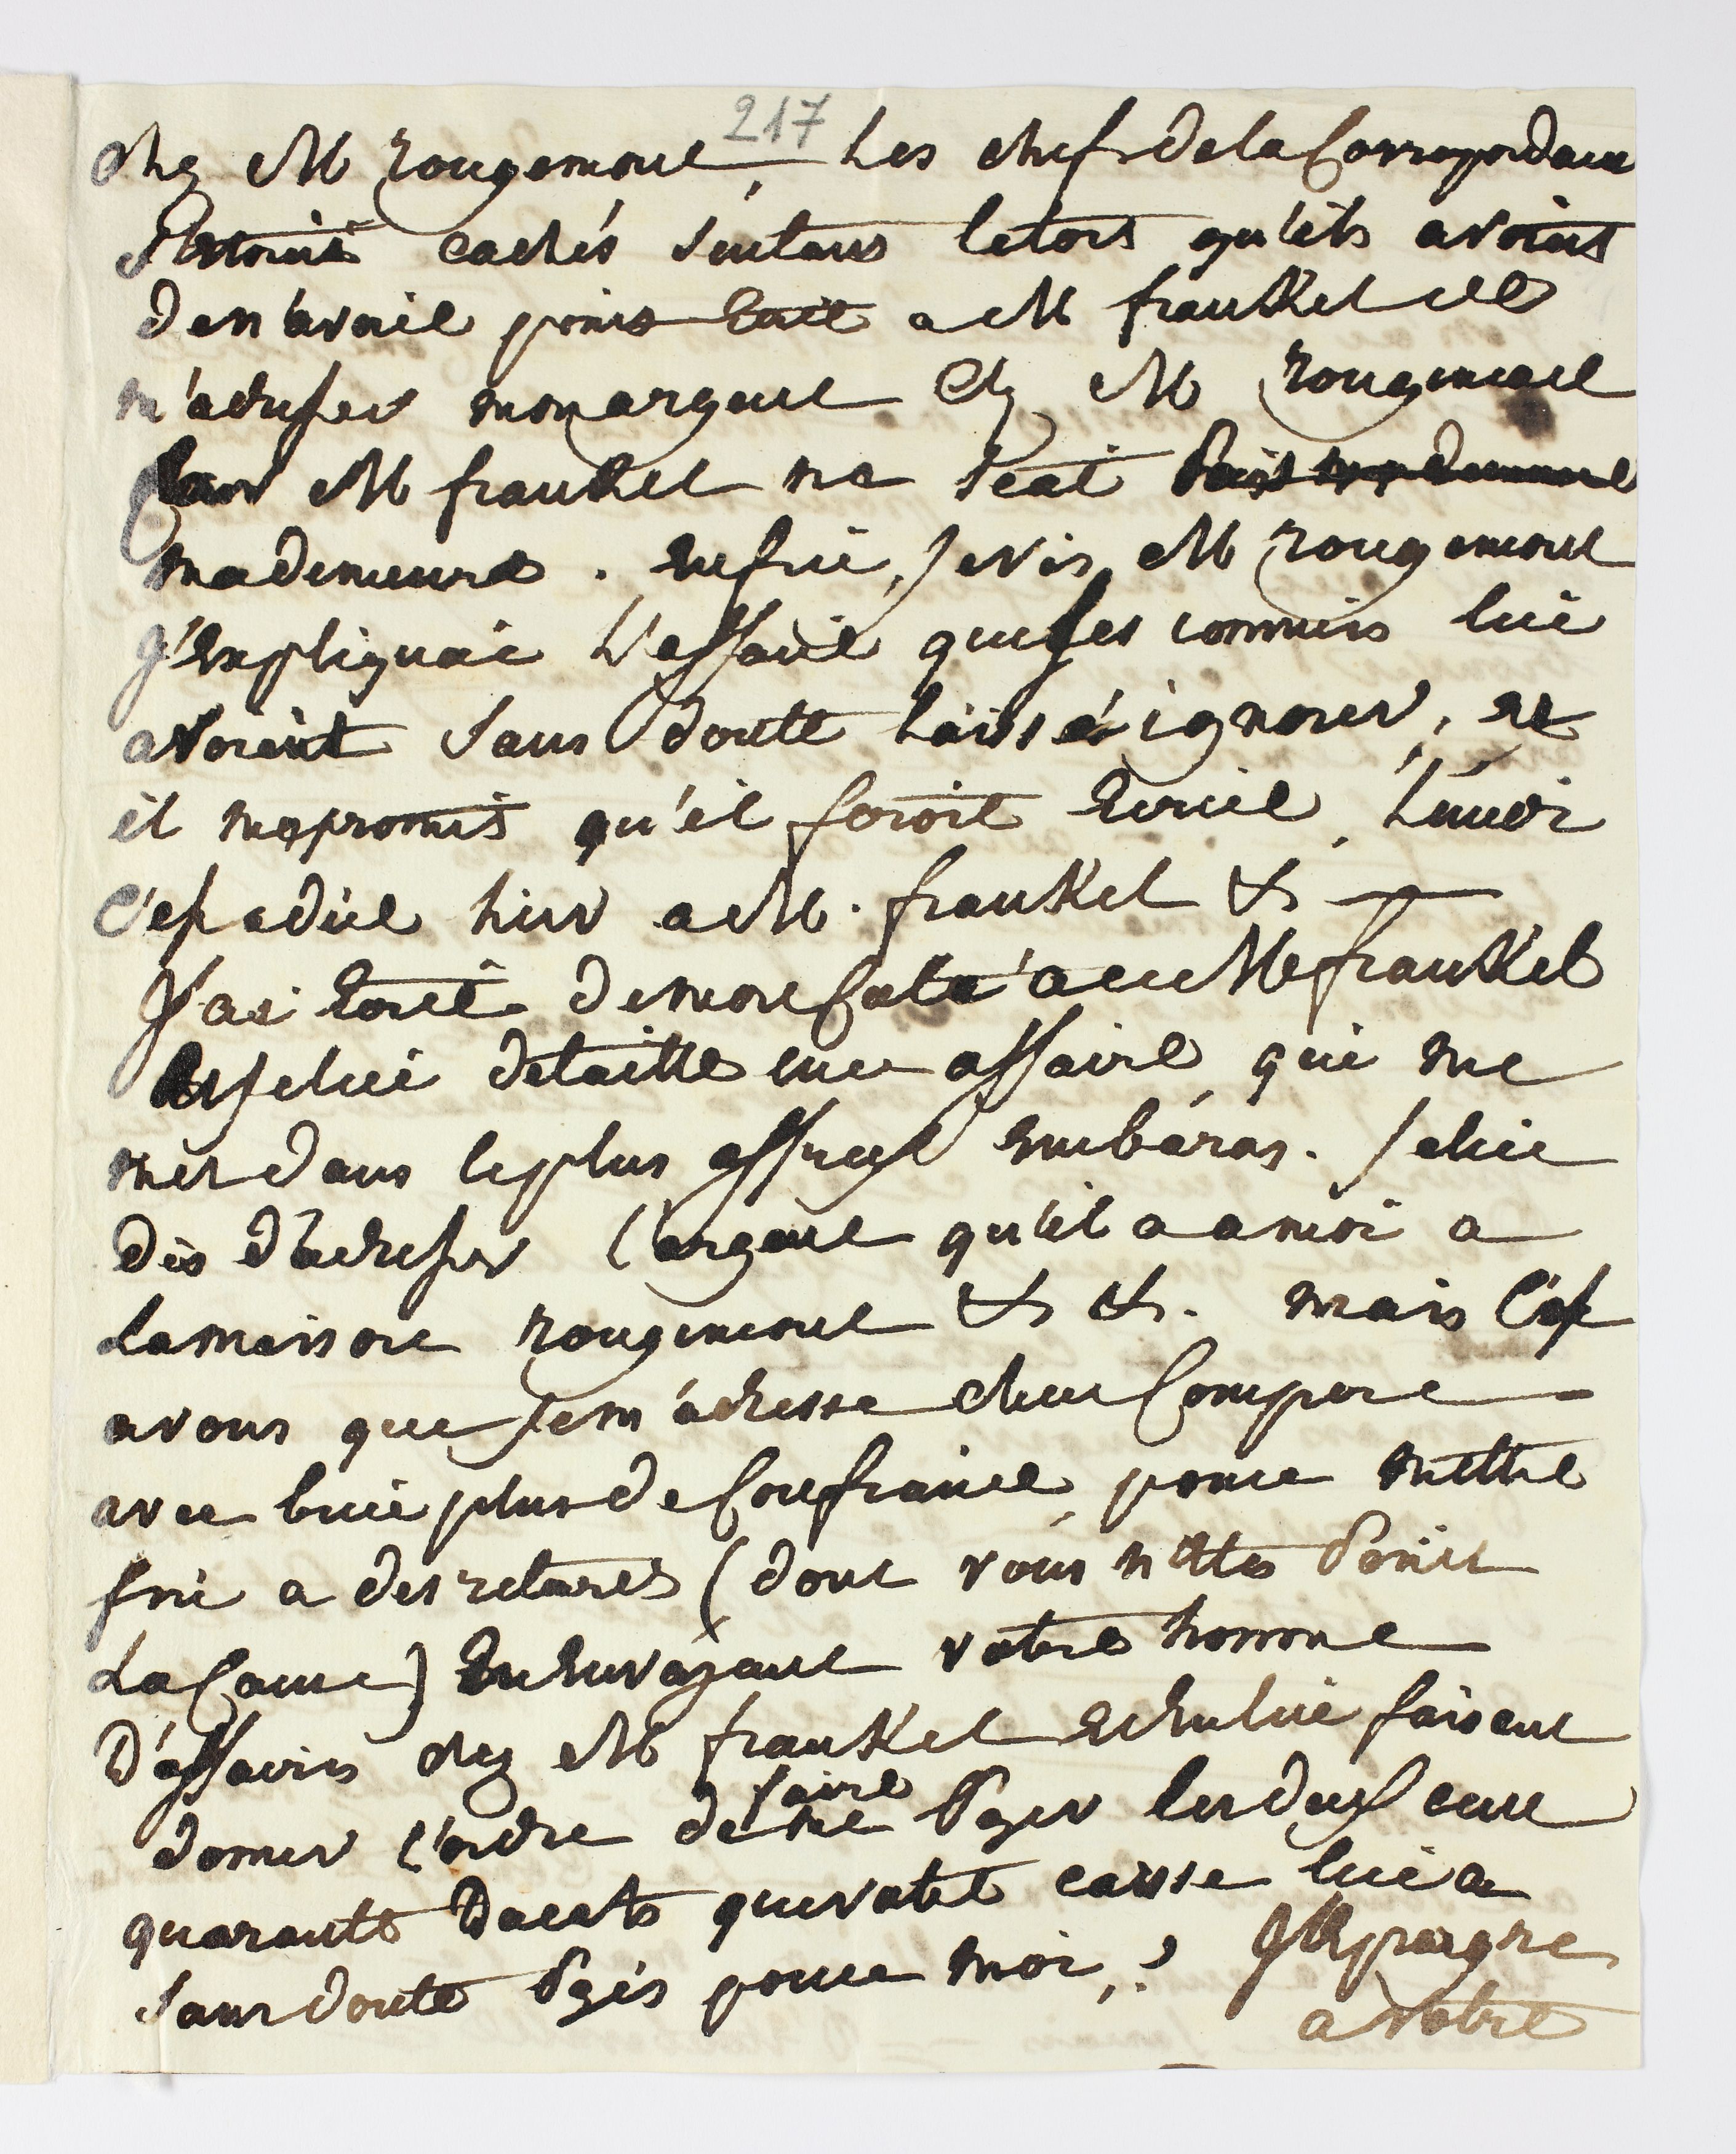 217
chez M rougemont, Les chefs de la Correspondance
s'étoint cachés sentans letort qu'ils avoint
den'avoir point Ecrit a M frankel de
m'adresser monargent chez M rougemont
Car M frankel ne scait
mademeure. enfin, je vis M rougemont
j'expliquai L'affaire que ses commis lui
avoient sans doute laissé ignorer, et
il mepromit qu'il feroit Ecrire, Lundi
c'est adire hier a M. frankel &
J'ai Ecrit demoncoté a ce M frankel
et jelui detaille une affaire qui me
met dans leplus affreux embáras. je lui
dis d'adresser l'argent qu'il a amoi a
Lamaison rougemont & &. mais c'est
avous que jem'adresse cher Compere
avec bien plusde Confiance pour mettre
fin a des retards (dont vous n'ettes point
La Cause) En Envoyant votre homme
D'affaires chez M frankel et en lui faisant
donner l'ordre de me faire Payer les deux cent
quarante Ducats que votre caisse lui a
sans doute Payés pour moi,? J'Epargne
a votre